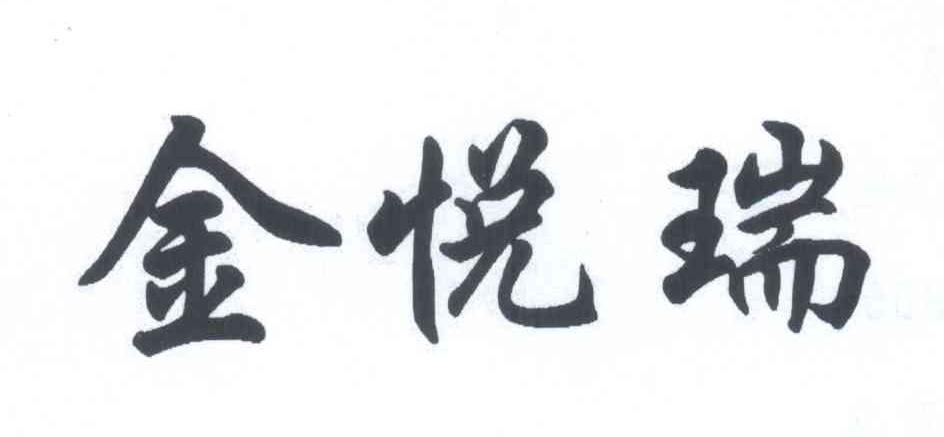 金悦瑞